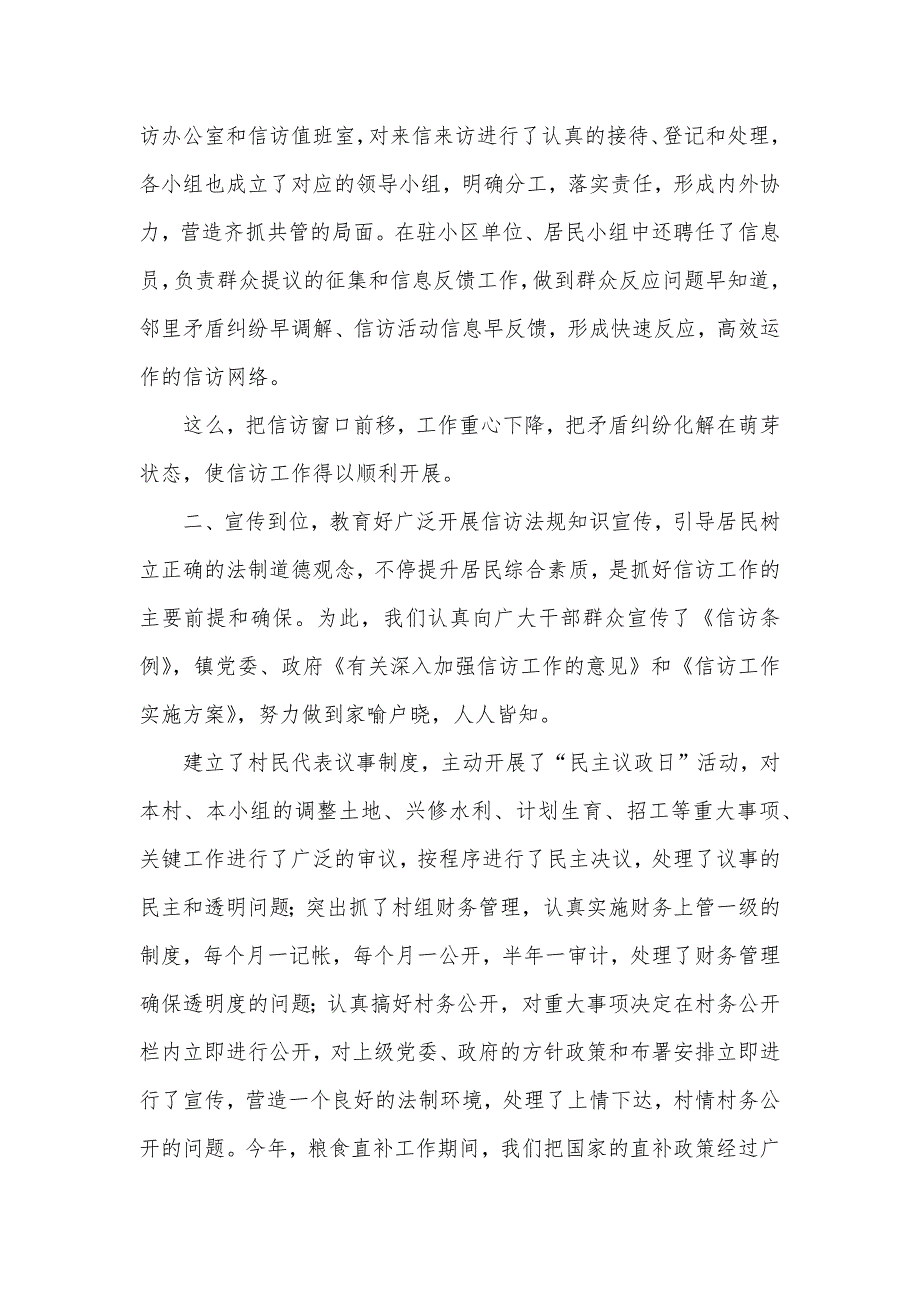 访办公室和信访值班室，对来信来访进行了认真的接待、登记和处理，
各小组也成立了对应的领导小组，明确分工，落实责任，形成内外协
力，营造齐抓共管的局面。在驻小区单位、居民小组中还聘任了信息
员，负责群众提议的征集和信息反馈工作，做到群众反应问题早知道，
邻里矛盾纠纷早调解、信访活动信息早反馈，形成快速反应，高效运
作的信访网络。
这么，把信访窗口前移，工作重心下降，把矛盾纠纷化解在萌芽
状态，使信访工作得以顺利开展。
二、宣传到位，教育好广泛开展信访法规知识宣传，引导居民树
立正确的法制道德观念，不停提升居民综合素质，是抓好信访工作的
主要前提和确保。为此，我们认真向广大干部群众宣传了《信访条
例》，镇党委、政府《有关深入加强信访工作的意见》和《信访工作
实施方案》，努力做到家喻户晓，人人皆知。
建立了村民代表议事制度，主动开展了“民主议政日”活动，对
本村、本小组的调整土地、兴修水利、计划生育、招工等重大事项、
关键工作进行了广泛的审议，按程序进行了民主决议，处理了议事的
民主和透明问题；突出抓了村组财务管理，认真实施财务上管一级的
制度，每个月一记帐，每个月一公开，半年一审计，处理了财务管理
确保透明度的问题；认真搞好村务公开，对重大事项决定在村务公开
栏内立即进行公开，对上级党委、政府的方针政策和布署安排立即进
行了宣传，营造一个良好的法制环境，处理了上情下达，村情村务公
开的问题。今年，粮食直补工作期间，我们把国家的直补政策经过广